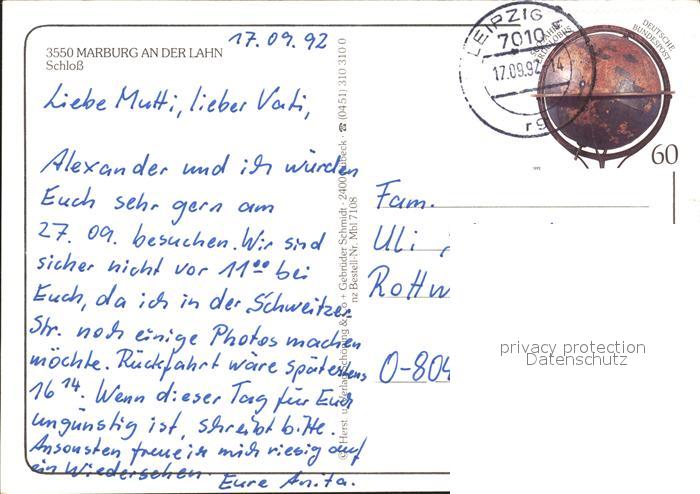 17.09.92
3550 MARBURG AN DER LAHN
Schloß
Liebe Mutti, lieber Vati,
Alexander und ich würden
Euch sehr gern am
27. 09. besuchen. Wir sind
sicher nicht vor 11⁰⁰ bei
Euch, da ich in der Schweitzer
Str. noch einige Photos machen
möchte. Rückfahrt wäre spätestens
16¹⁴. Wenn dieser Tag für Euch
ungünstig ist, schreibt bitte.
Ansonsten freue ich mich riesig auf
ein Wiedersehen.
Eure Anita.
Schöning & Co + Gebrüder Schmidt · 2400 Lübeck · ☎ (0451) 310 310 0
Bestell-Nr. Mbl 7108
LEIPZIG
7010
17.09.92-14
DEUTSCHE
BUNDESPOST
60
Fam.
Uli
Rottw
O-804
privacy protection
Datenschutz